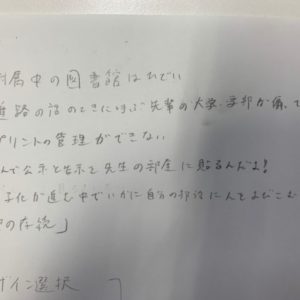 附属中の図書館はひどい
進路の話のときに呼ぶ先輩の大学、学部が偏って
プリントの管理ができない
んで公示と告示を先生の部屋に貼るんだよ!
子化が進む中でいかに自分の部活に人をよびこむ
の存続」
ザイン選択